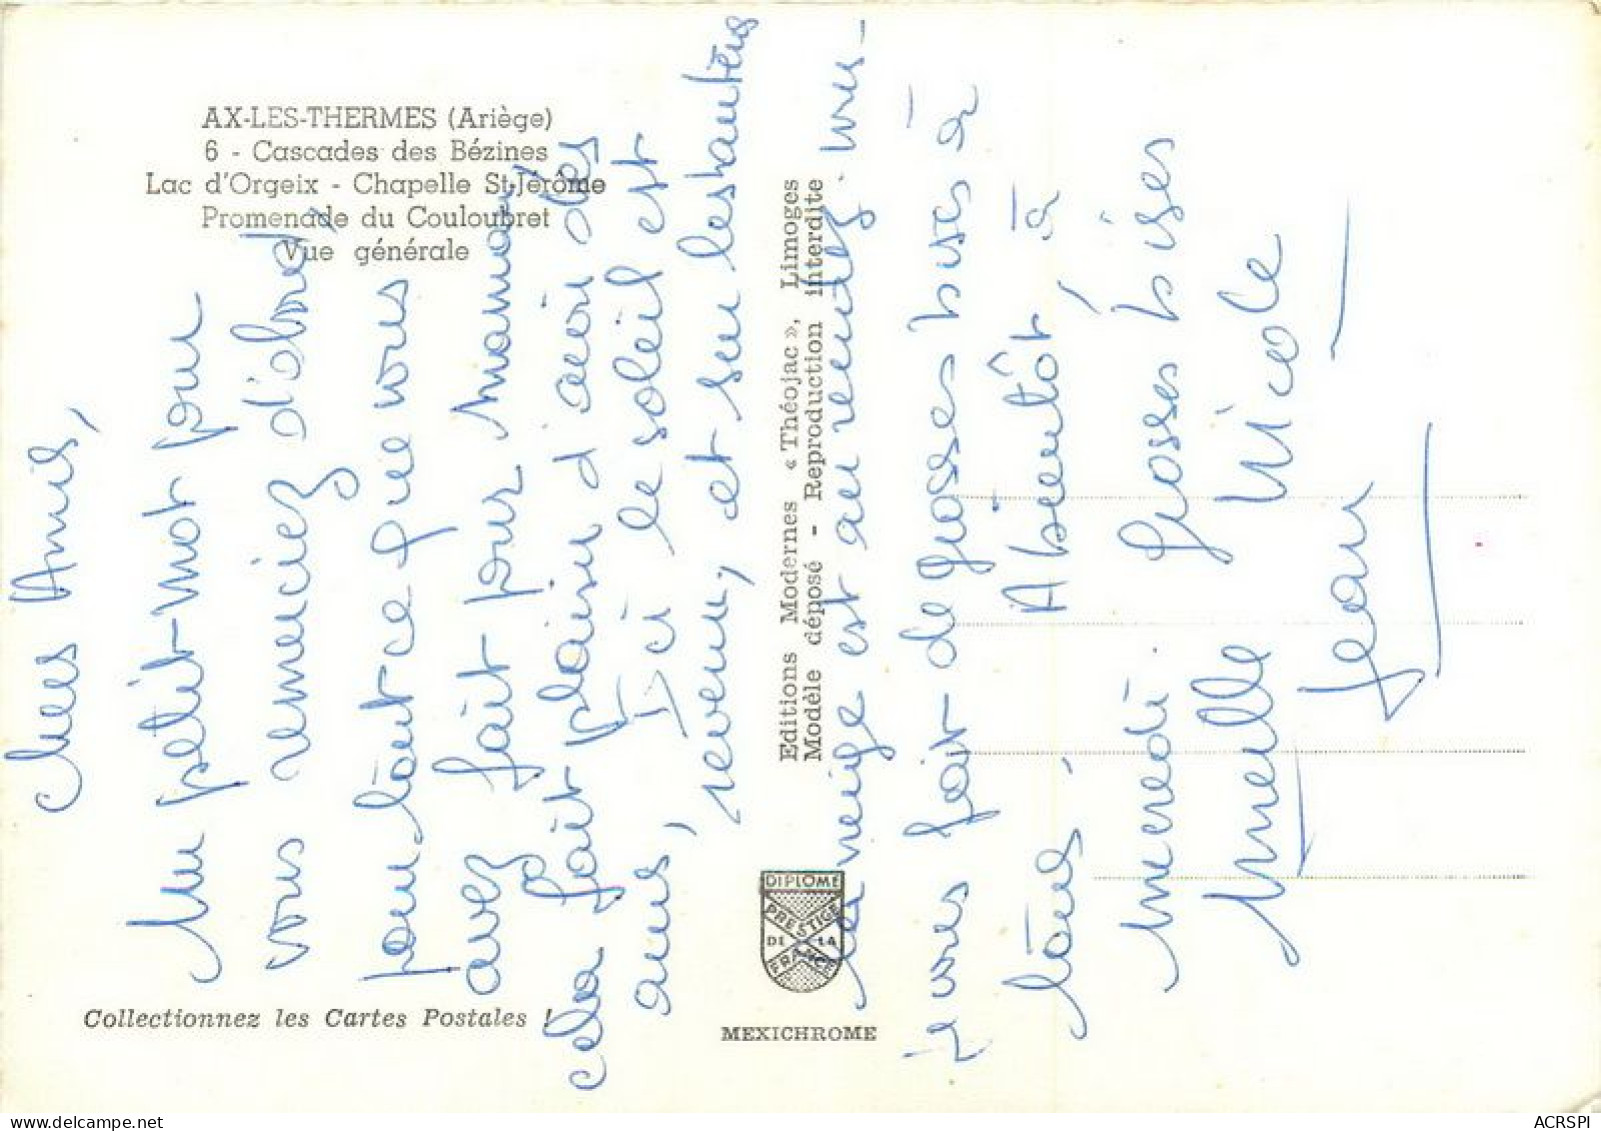 AX-LES-THERMES (Ariège)
6 - Cascades des Bézines
Lac d'Orgeix - Chapelle St-Jérôme
Promenade du Couloubret
Vue générale
Editions Modernes « Théojac », Limoges
Modèle déposé - Reproduction interdite
DIPLOME
PRESTIGE
DE LA
FRANCE
Collectionnez les Cartes Postales !
MEXICHROME
Chers Amis,
Un petit-mot pour
vous remerciez d'abord,
pour tout ce que vous
avez fait pour maman
cela fait plaisir d'avoir des
amis, Ici le soleil est
revenu, et sur les hauteurs
la neige est au rendez-vous
je vous fait de grosses bises à
tous, A bientôt à
mercredi. Grosses bises
Mireille Nicole
Jean
ACRSPI